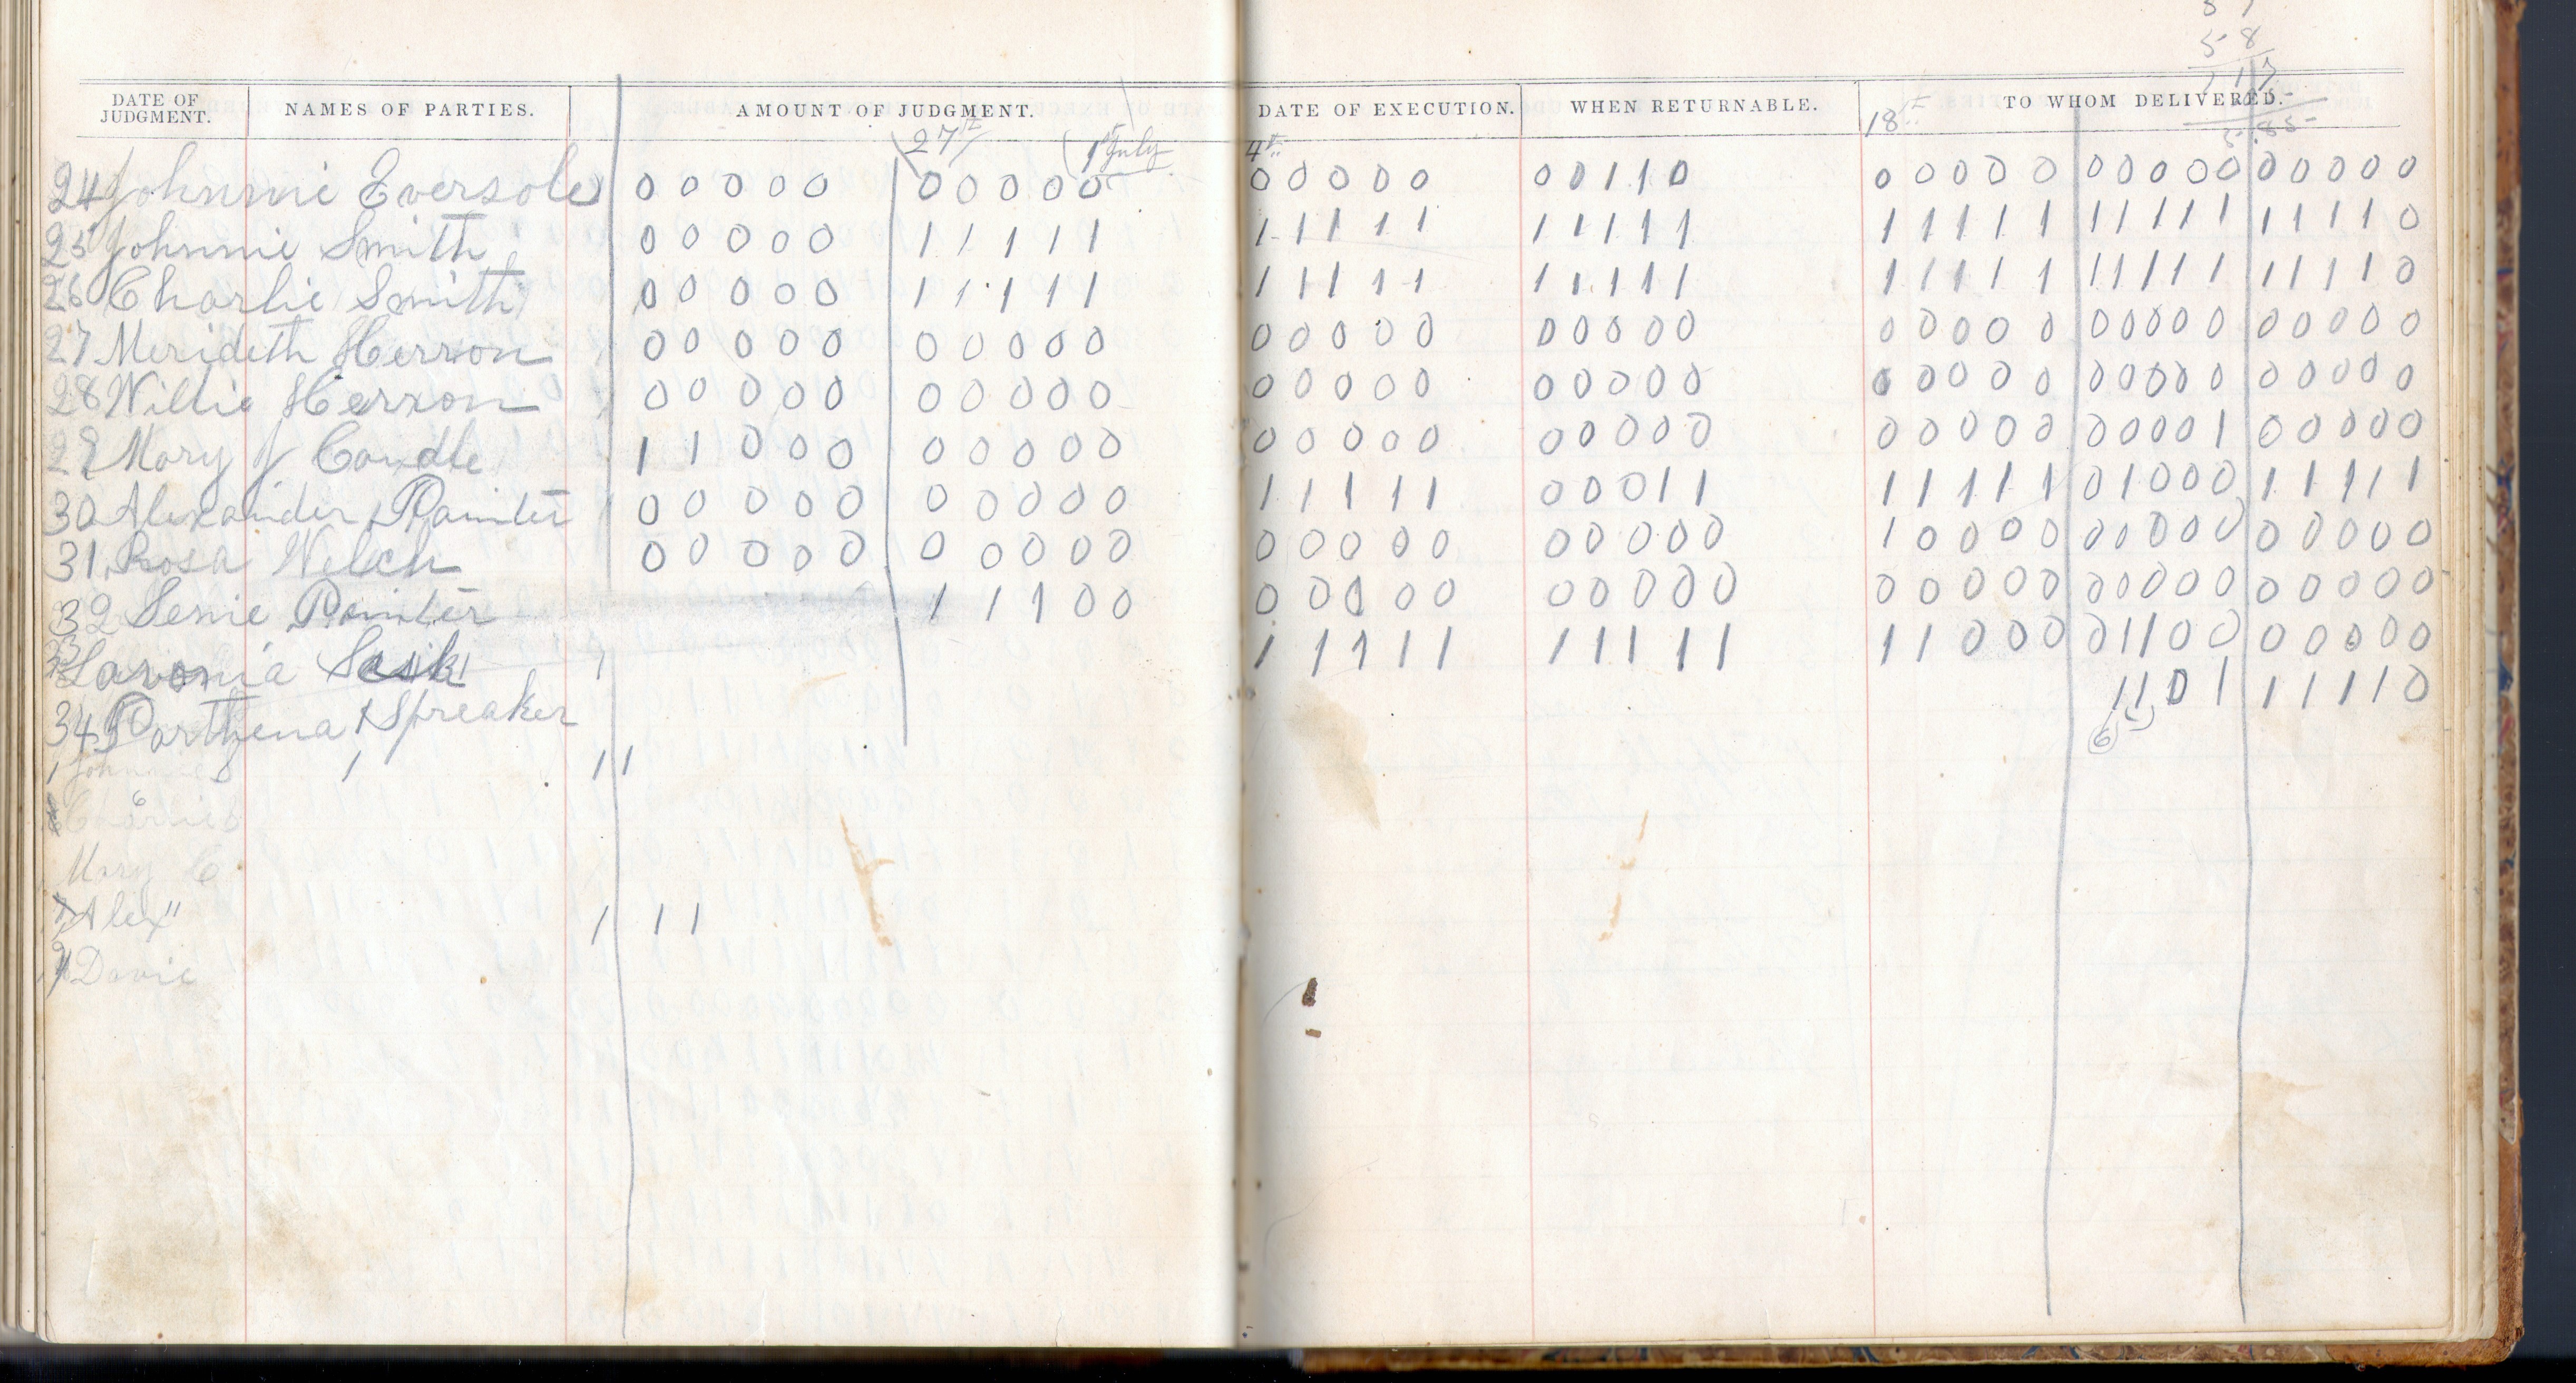 5 8
DATE OF JUDGMENT. NAMES OF PARTIES. AMOUNT OF JUDGMENT. DATE OF EXECUTION. WHEN RETURNABLE. TO WHOM DELIVERED.
27th 1st July 4th 18th
24 Johnnie Eversole 0 0 0 0 0 0 0 0 0 0 0 0 0 0 0 0 0 1 1 0 0 0 0 0 0 0 0 0 0 0 0 0 0 0 0
25 Johnnie Smith 0 0 0 0 0 1 1 1 1 1 1 1 1 1 1 1 1 1 1 1 1 1 1 1 1 1 1 1 1 1 1 1 1 1 0
26 Charlie Smith 0 0 0 0 0 1 1 1 1 1 1 1 1 1 1 1 1 1 1 1 1 1 1 1 1 1 1 1 1 1 1 1 1 1 0
27 Merideth Herron 0 0 0 0 0 0 0 0 0 0 0 0 0 0 0 0 0 0 0 0 0 0 0 0 0 0 0 0 0 0 0 0 0 0 0
28 Willie Herron 0 0 0 0 0 0 0 0 0 0 0 0 0 0 0 0 0 0 0 0 0 0 0 0 0 0 0 0 0 0 0 0 0 0 0
29 Mary J Caudle 1 1 0 0 0 0 0 0 0 0 0 0 0 0 0 0 0 0 0 0 0 0 0 0 0 0 0 0 0 1 0 0 0 0 0
30 Alexander Painter 0 0 0 0 0 0 0 0 0 0 1 1 1 1 1 0 0 0 1 1 1 1 1 1 1 0 1 0 0 0 1 1 1 1 1
31 Rosa Welch 0 0 0 0 0 0 0 0 0 0 0 0 0 0 0 0 0 0 0 0 1 0 0 0 0 0 0 0 0 0 0 0 0 0 0
32 Senie Painter 1 1 1 0 0 0 0 0 0 0 0 0 0 0 0 0 0 0 0 0 0 0 0 0 0 0 0 0 0 0
33 Lavonia 1 1 1 1 1 1 1 1 1 1 1 1 0 0 0 0 1 1 0 0 0 0 0 0 0
34 Parthena Spreaker 1 1 0 1 1 1 1 1 0
6
1 Johnnie S 1 1 1
Charlie S
Mary C
Alex" 1 1 1
Davie